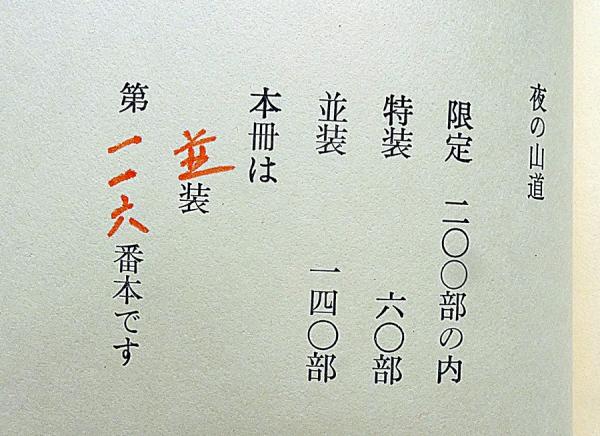 夜の山道
限定 二〇〇部の内
特装 六〇部
並装 一四〇部
本冊は
並装
第一一六番本です